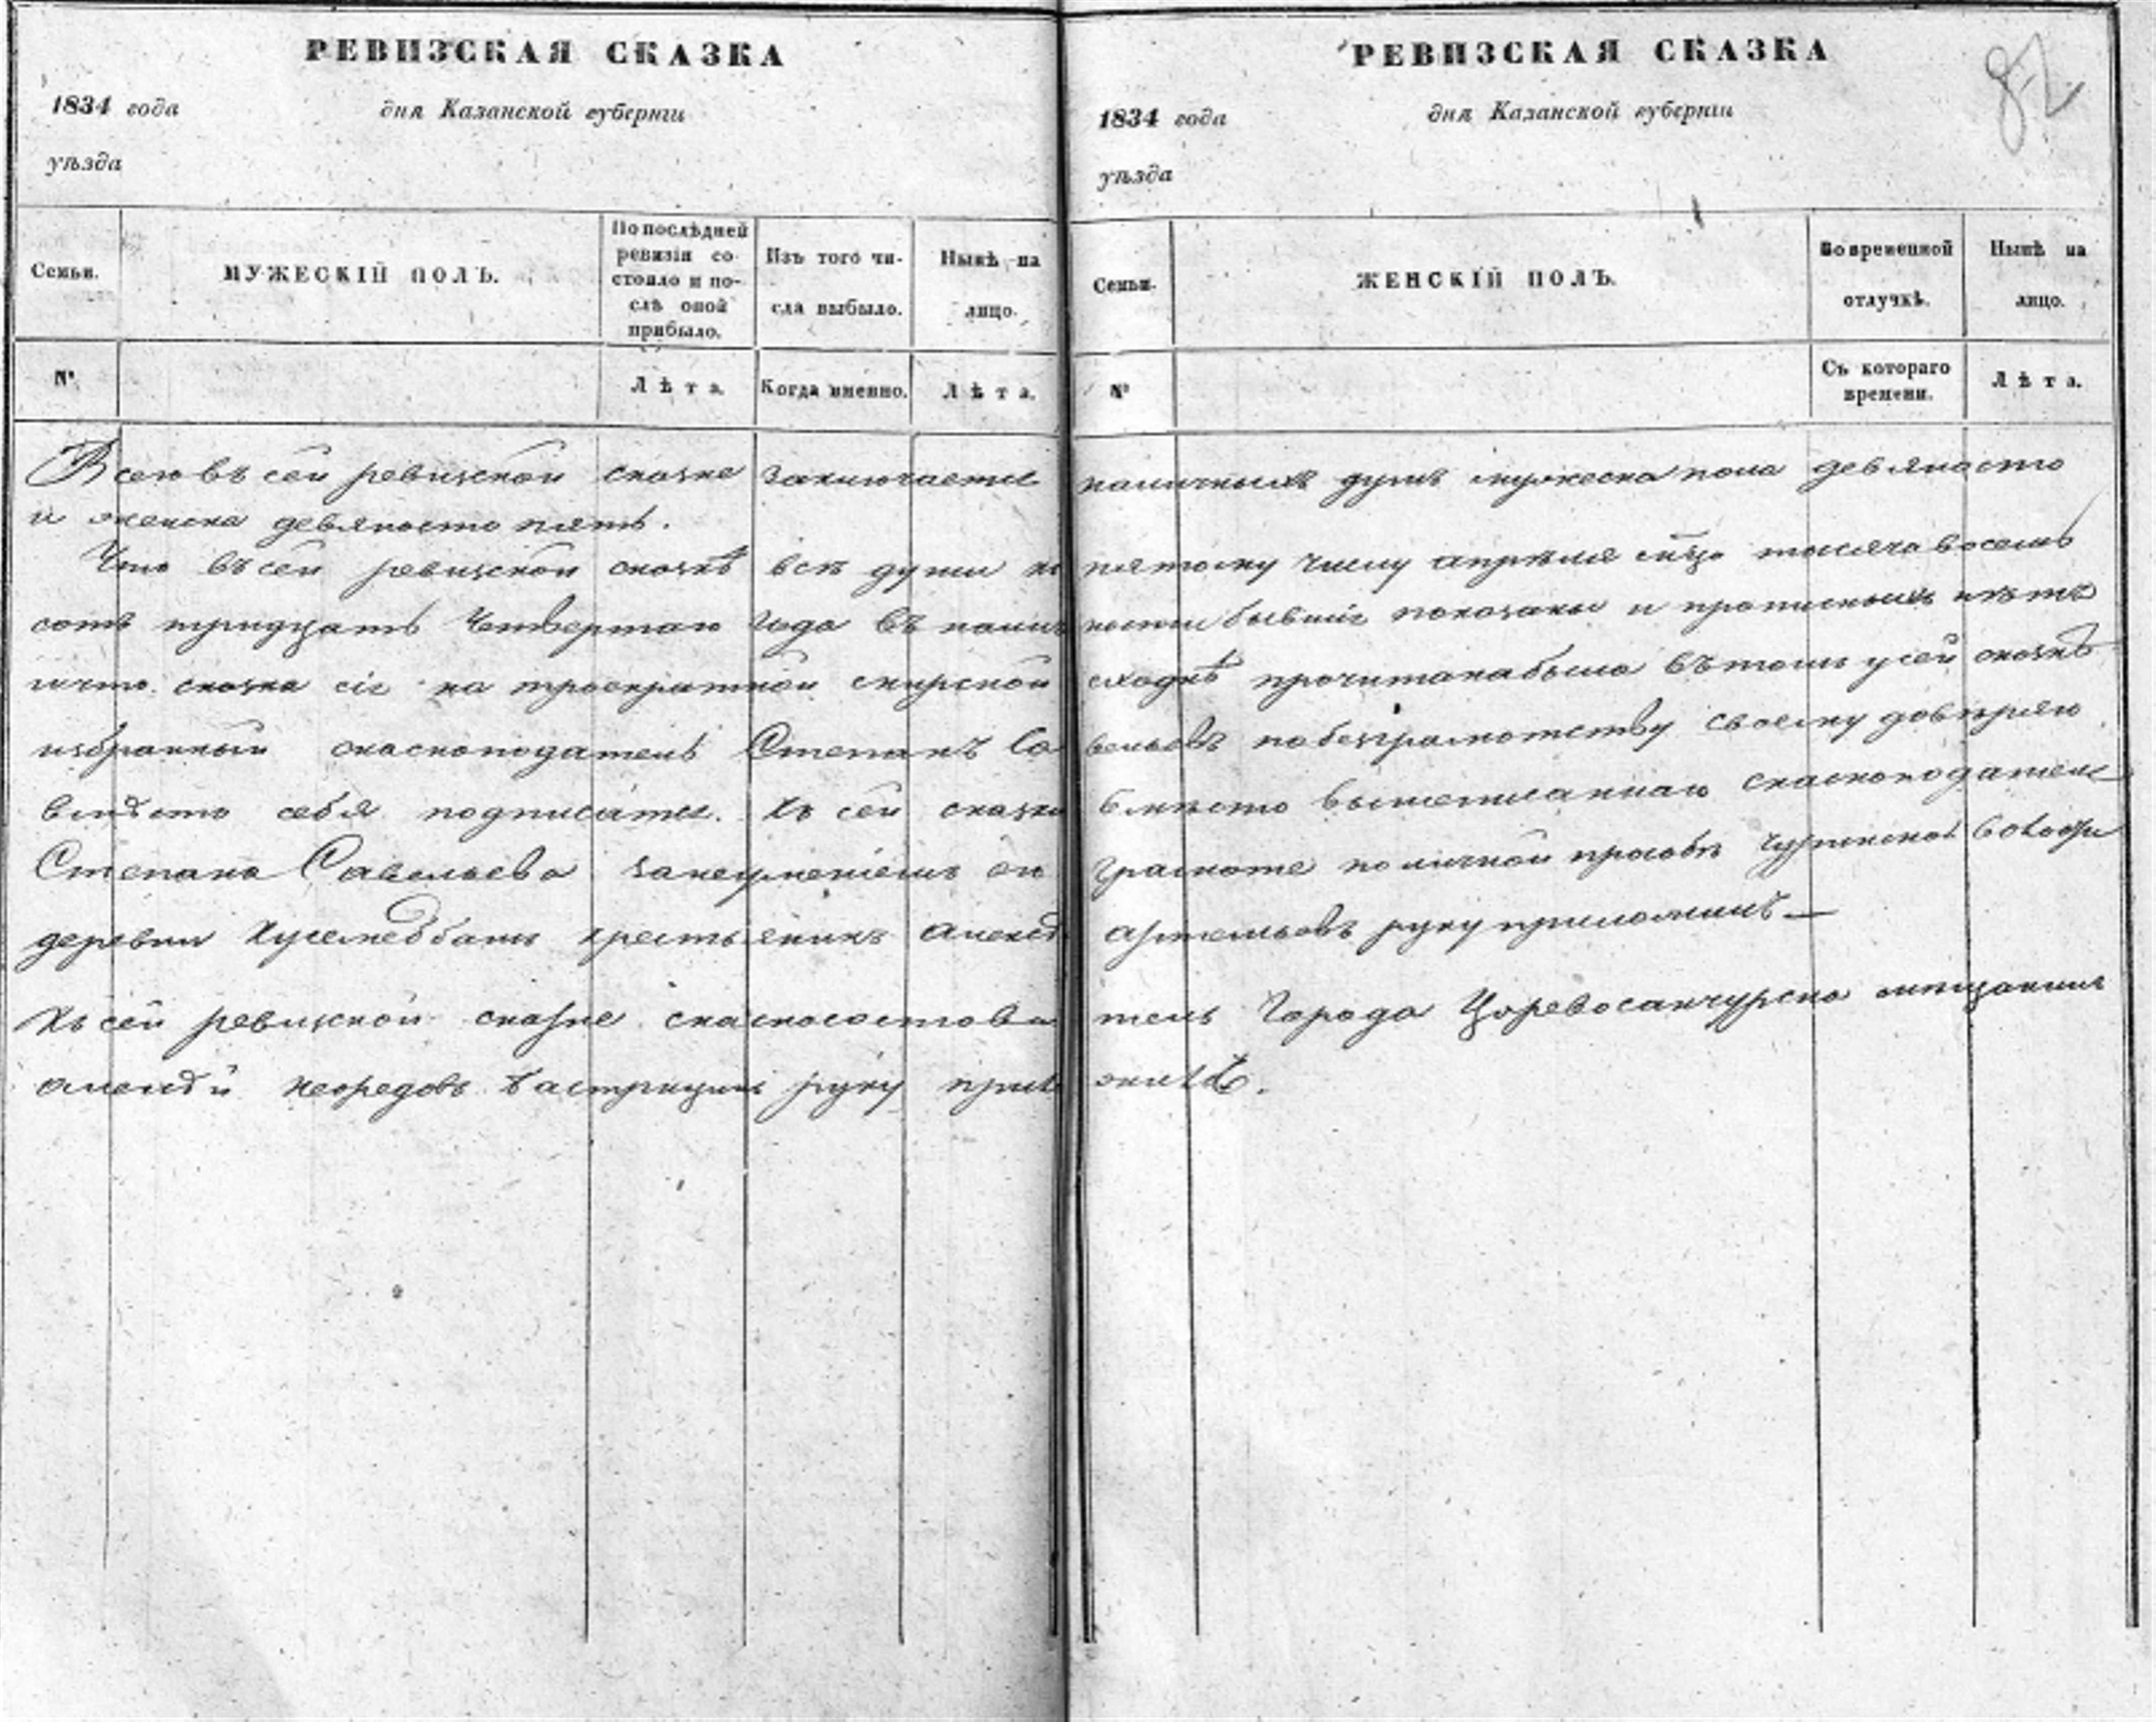 РЕВИЗСКАЯ СКАЗКА
1834 года дня Казанской губернiи
уѣзда
Семьи. МУЖЕСКIЙ ПОЛЪ. По послѣдней ревизiи состояло и послѣ оной прибыло. Изъ того числа выбыло. Нынѣ на лицо.
№ Лѣта. Когда именно. Лѣта.
РЕВИЗСКАЯ СКАЗКА
82
1834 года дня Казанской губернiи
уѣзда
Семьи. ЖЕНСКIЙ ПОЛЪ. Во временной отлучкѣ. Нынѣ на лицо.
№ Съ котораго времени. Лѣта.
Всего въ сей ревизской сказке заключается наличныхъ душъ мужеска пола девяносто
и женска девяносто пять.
Что въ сей ревизской сказкѣ всѣ души къ пятому числу апрѣля мѣца тысяча восемь
сотъ тридцать Четвертаго Года въ наличности бывшiе показаны и прописныхъ нѣтъ
и что сказка сiя на троекратной мирской сходкѣ прочитана была въ томъ у сей сказкѣ
избранный сказкоподатель Степанъ Савельевъ по безграмотству своему довѣряю
вмѣсто себя подписатся. Къ сей сказки вмѣсто вышеписаннаго сказкоподателя
Степана Савельева занеумѣнiемъ онъ грамоте по личной прозбѣ
деревни крестьянинъ Алексѣй Артемьевъ руку приложилъ
Къ сей ревизской сказке сказкосоставитель Города Царевосанчурска мѣщанинъ
Алексѣй руку приложилъ.